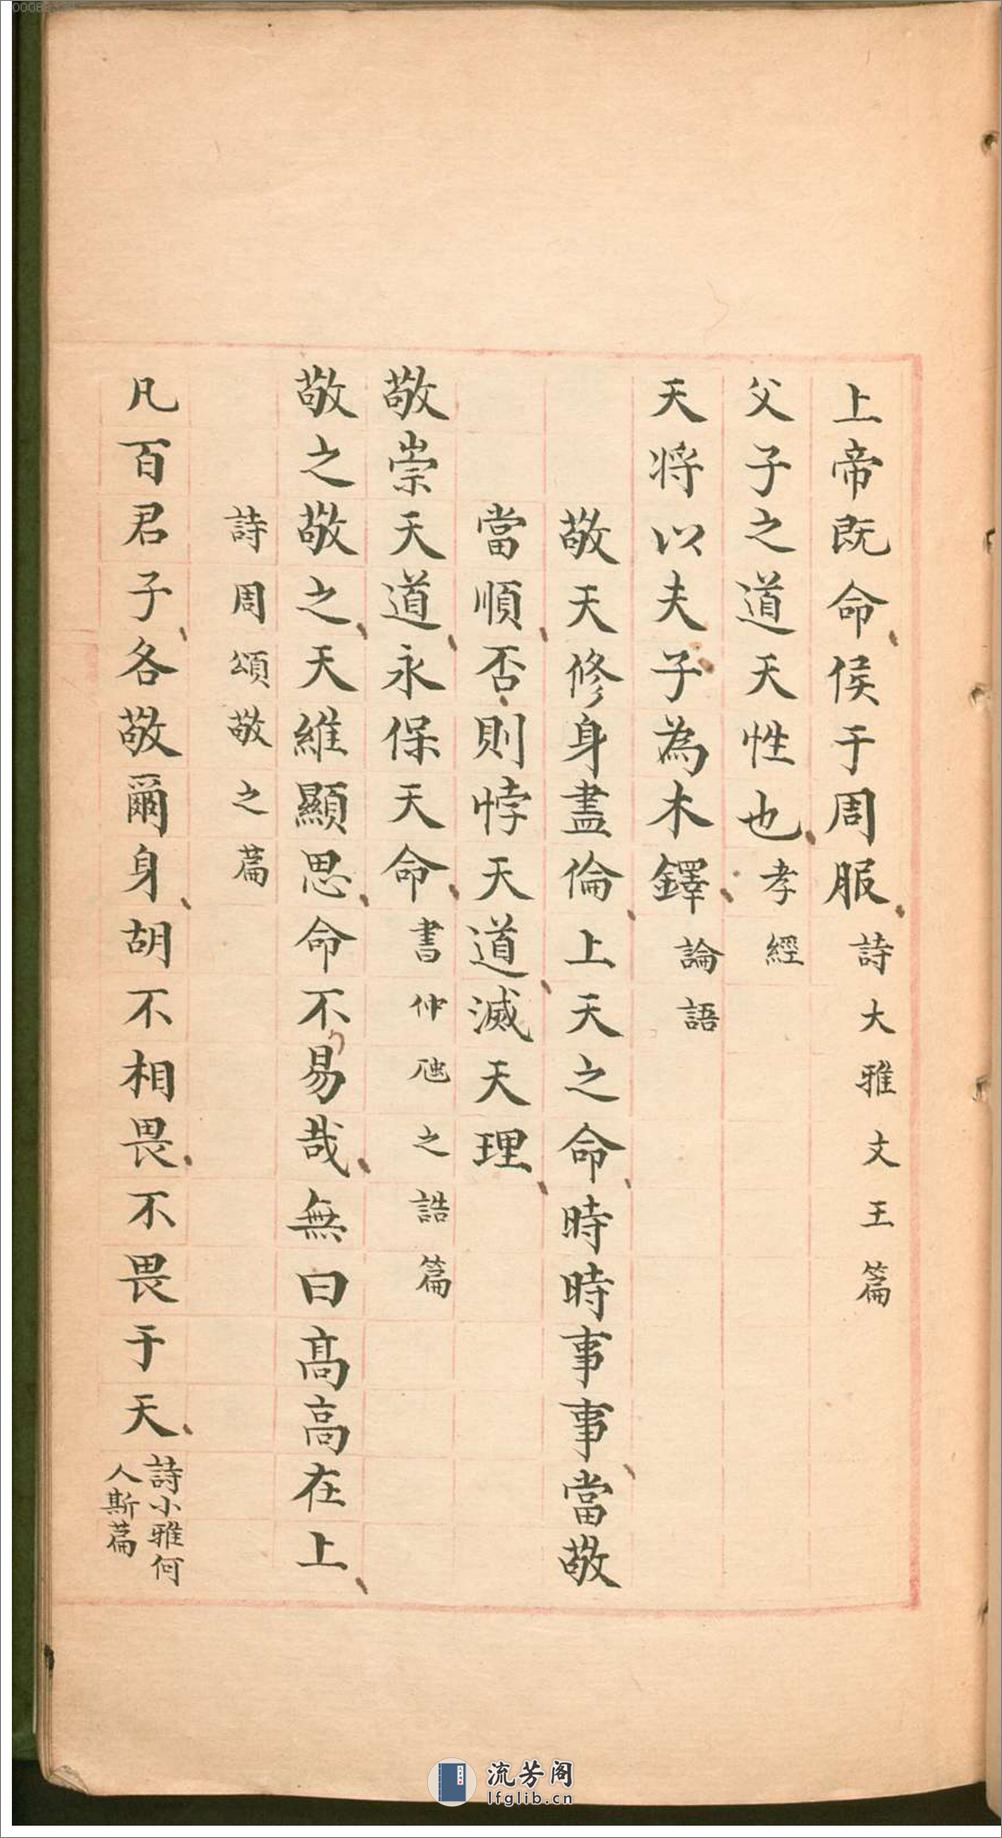 上帝既命侯于周服詩大雅文王篇
父子之道天性也孝經
天将以夫子為木鐸論語
敬天修身盡倫上天之命時時事事當敬
當順否則悖天道滅天理
敬崇天道永保天命書仲虺之誥篇
敬之敬之天維顯思命不易哉無曰高高在上
詩周頌敬之篇
凡百君子各敬爾身胡不相畏不畏于天詩小雅何
人斯篇
流芳阁
lfglib.cn